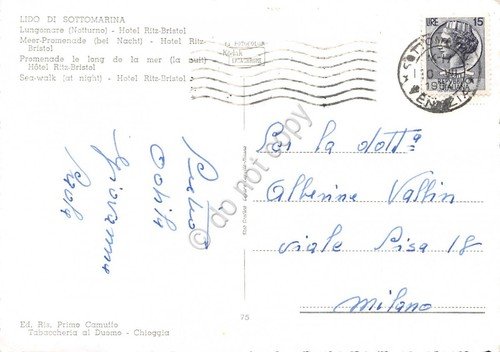 LIDO DI SOTTOMARINA
Lungomare (Notturno) - Hotel Ritz-Bristol
Meer-Promenade (bei Nacht) - Hotel Ritz-
Bristol
Promenade le long de la mer (la nuit)
Hôtel Ritz-Bristol
Sea-walk (at night) - Hotel Ritz-Bristol
Kodak
LIRE 15
Per la dottª
Albenine Vallin
viale Pisa 18
Milano
Giovanna
Paola
do not copy
75
Ed. Ris. Primo Camuffo
Tabaccheria al Duomo - Chioggia